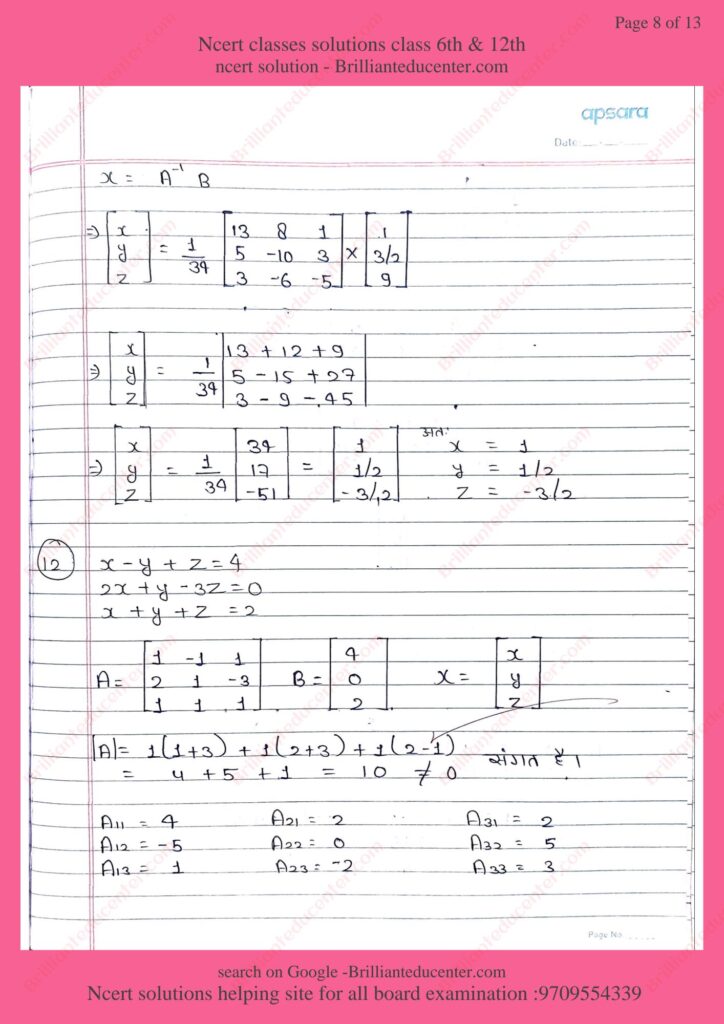 Page 8 of 13
Ncert classes solutions class 6th & 12th
ncert solution - Brillianteducenter.com
apsara
Date:
x = A⁻¹ B
⇒ [x y z] = 1/34 [13 8 1; 5 -10 3; 3 -6 -5] × [1 3/2 9]
⇒ [x y z] = 1/34 |13 + 12 + 9; 5 - 15 + 27; 3 - 9 - 45|
⇒ [x y z] = 1/34 [34 17 -51] = [1 1/2 -3/2] अतः x = 1
y = 1/2
z = -3/2
12 x - y + z = 4
2x + y - 3z = 0
x + y + z = 2
A = [1 -1 1; 2 1 -3; 1 1 1] B = [4 0 2] X = [x y z]
|A| = 1(1+3) + 1(2+3) + 1(2-1)
= 4 + 5 + 1 = 10 ≠ 0 संगत है।
A11 = 4 A21 = 2 A31 = 2
A12 = -5 A22 = 0 A32 = 5
A13 = 1 A23 = -2 A33 = 3
Page No.
search on Google -Brillianteducenter.com
Ncert solutions helping site for all board examination :9709554339